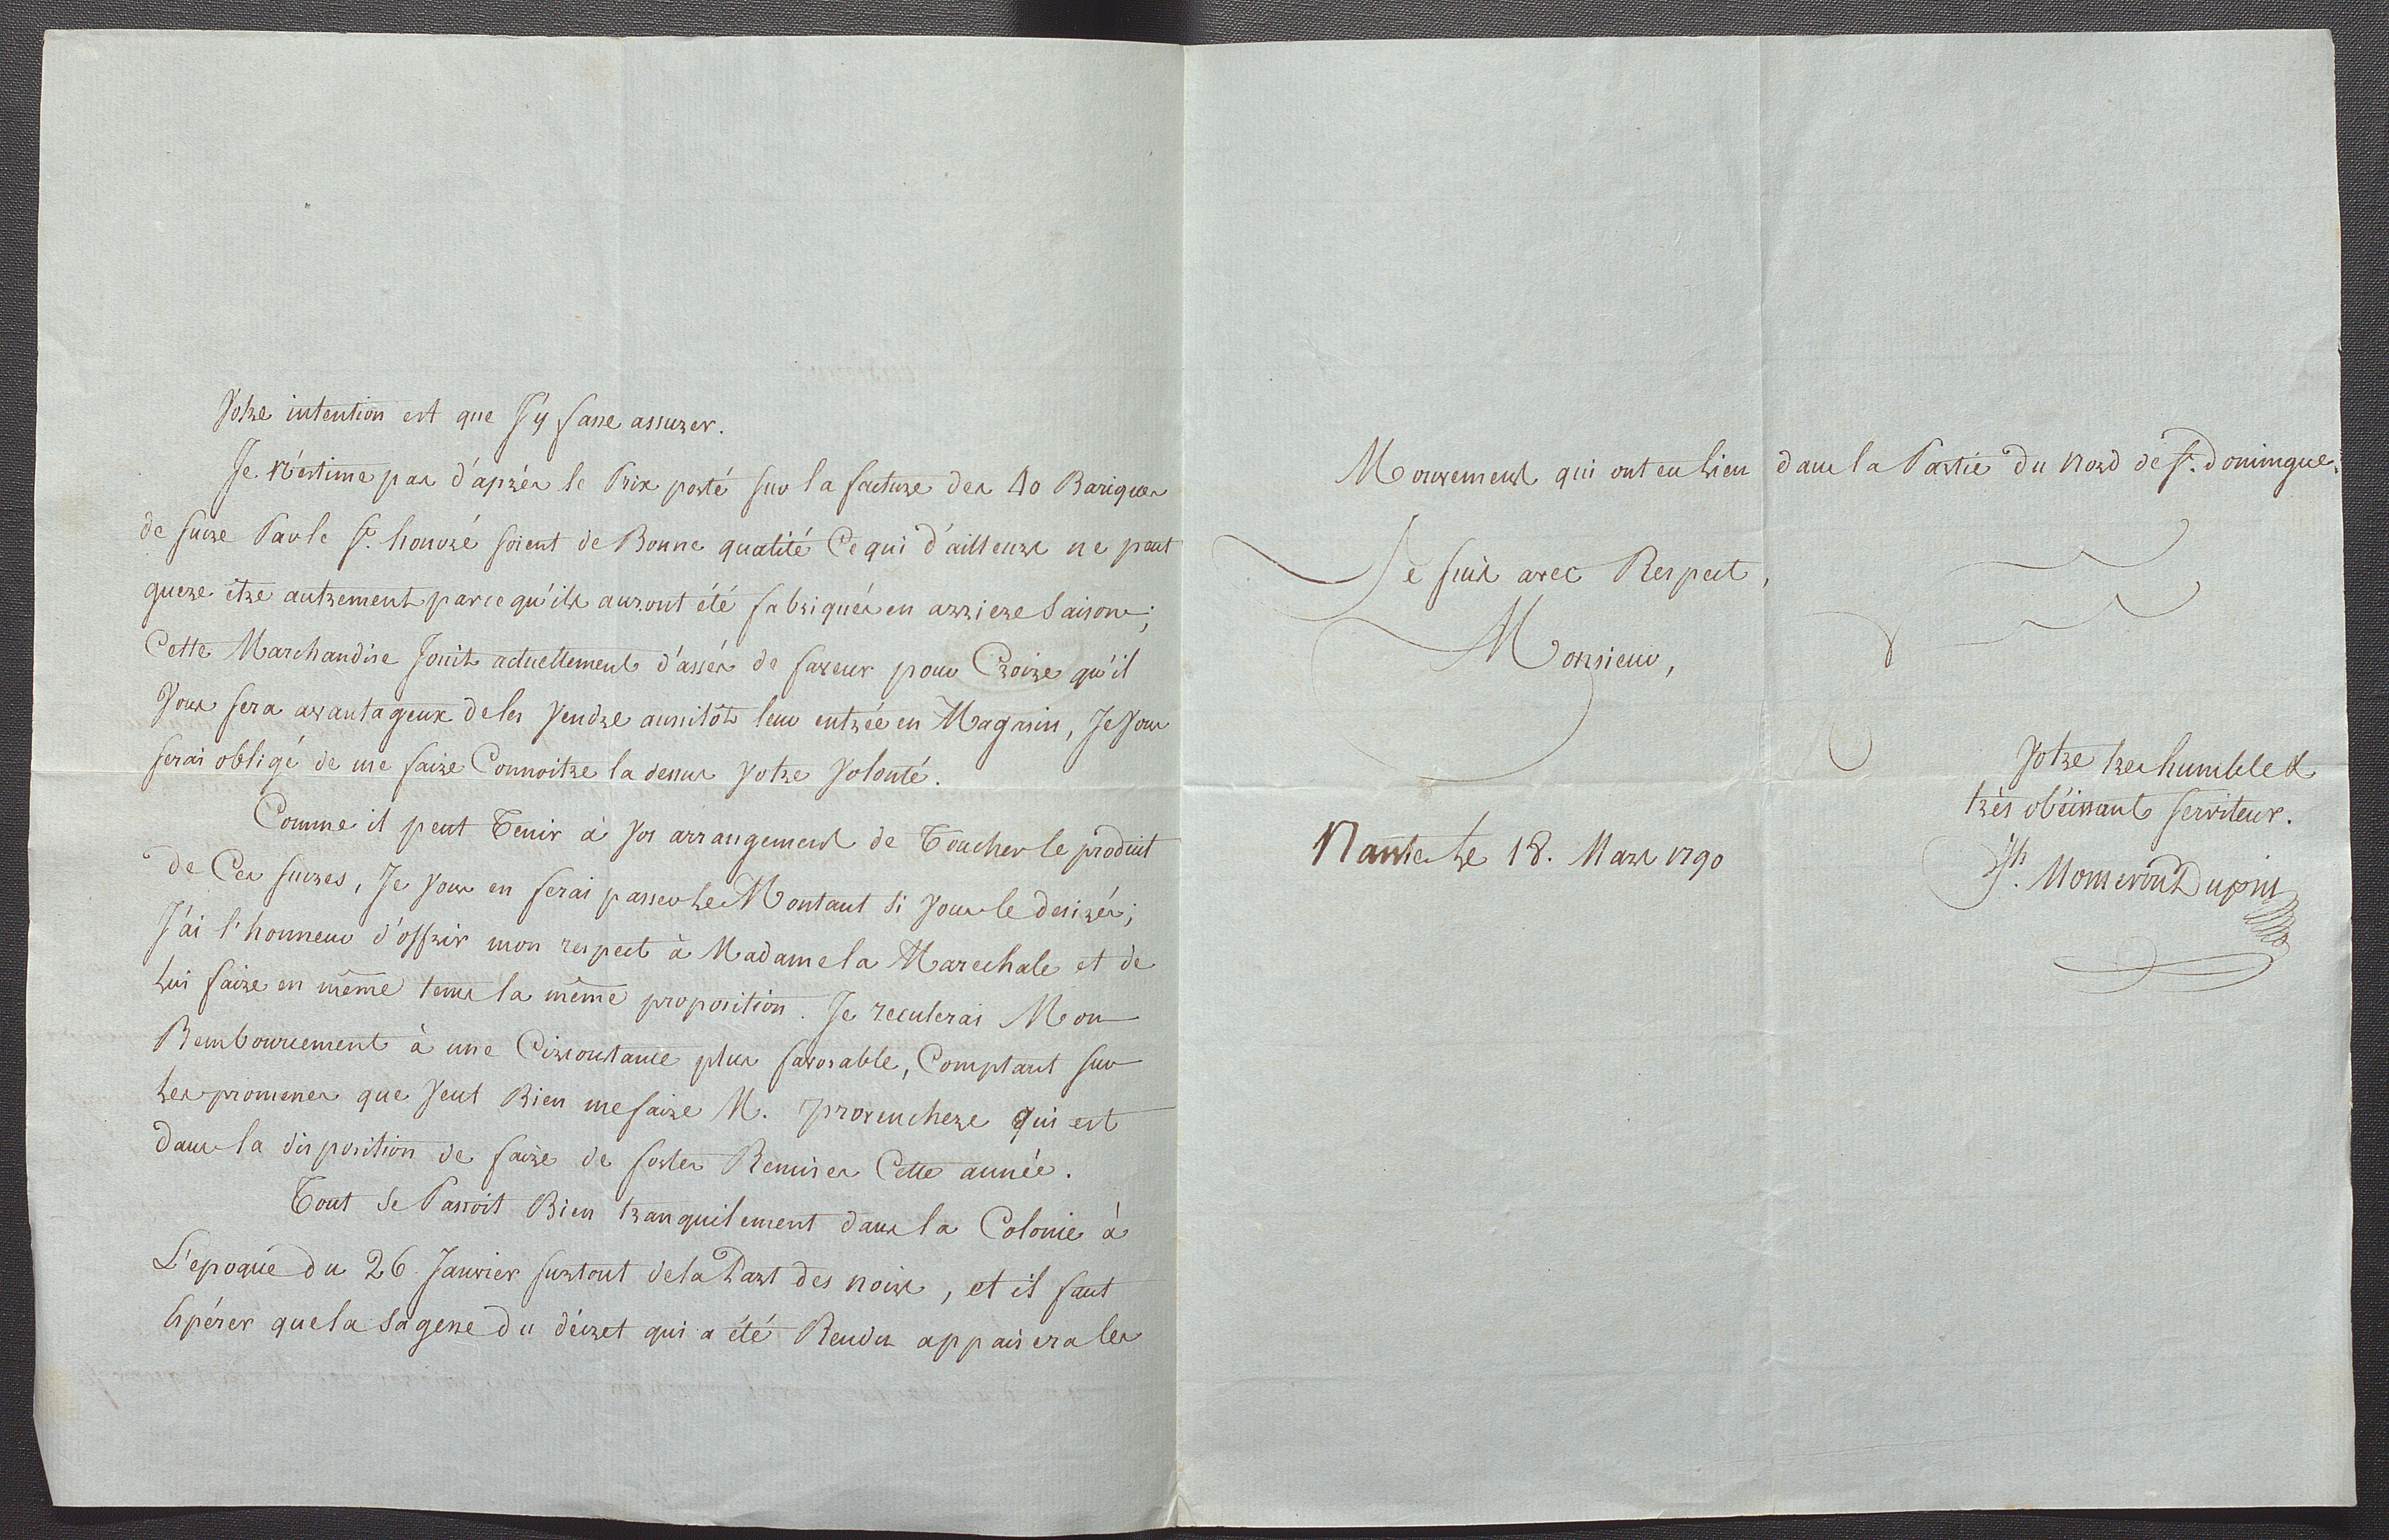 Votre intention est que J'y fasse assurer.
Je N'estime pas d'aprés le Prix porté sur la facture des 40 Bariques
de sucre Par le St. honoré soient de Bonne qualité Ce qui d'ailleurs ne peut
guere être autrement parce qu'ils auront été fabriqués en arriere Saison;
Cette Marchandise Jouit actuellement d'assés de faveur pour Croire qu'il
Vous sera avantageux de les Vendre aussitôt leur entrée en Magasin, Je Vous
serai obligé de me faire Connoitre la dessus Votre Volonté.
Comme il peut Tenir à Vos arrangements de Toucher le produit
de Ces sucres, Je Vous en ferai passer Le Montant Si Vous le desirés;
J'ai l'honneur d'offrir mon respect à Madame la Marechale et de
Lui faire en même tems la même proposition. Je reculerai Mon
Remboursement à une Circonstance plus favorable, Comptant sur
Les promesses que Veut Bien me faire M. provenchere qui est
dans la disposition de faire de fortes Remises Cette année.
Tout Se Passoit Bien tranquilement dans la Colonie à
L'epoque du 26 Janvier surtout de la Part des noirs, et il faut
Espérer que la Sagesse du décret qui a été Rendu appaisera les
Mouvements qui ont eu Lieu dans la Partie du Nord de St. domingue.
Je suis avec Respect,
Monsieur,
Votre tres humble &
très obéissant serviteur.
Nantes Le 18. Mars 1790
Jh. Mosneron Dupin